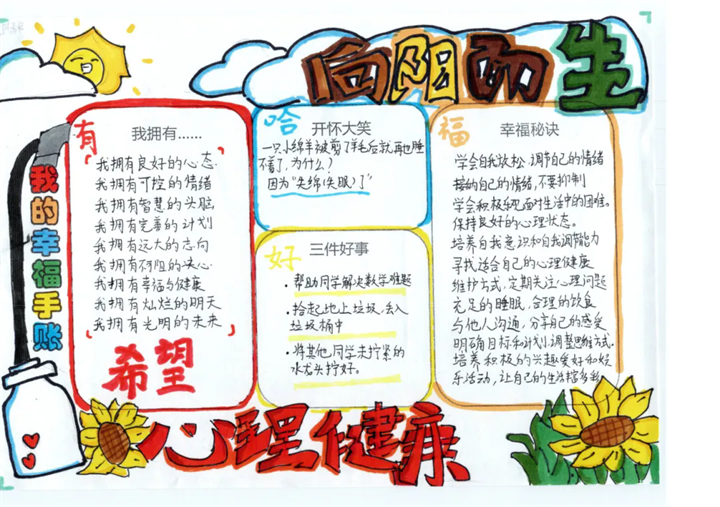 向阳而生
我的幸福手账
有
我拥有……
我拥有良好的心态
我拥有可控的情绪
我拥有智慧的头脑
我拥有完善的计划
我拥有远大的志向
我拥有的决心
我拥有幸福与健康
我拥有灿烂的明天
我拥有光明的未来
希望
哈
开怀大笑
一只小绵羊被剪了羊毛后就再也睡
不着了,为什么?
因为“失绵(失眠)了”
好
三件好事
· 帮助同学解决数学难题
· 拾起地上垃圾,丢入
垃圾桶中
· 将其他同学未拧紧的
水龙头拧好。
福
幸福秘诀
学会自我放松,调节自己的情绪
接纳自己的情绪,不要抑制
学会积极乐观面对生活中的困难。
保持良好的心理状态。
培养自我意识和自我调节能力
寻找适合自己的心理健康
维护方式,定期关注心理问题
充足的睡眠,合理的饮食
与他人沟通,分享自己的感受
明确目标和计划,调整思维方式.
培养积极的兴趣爱好和娱
乐活动,让自己的生活丰富多彩
心理健康